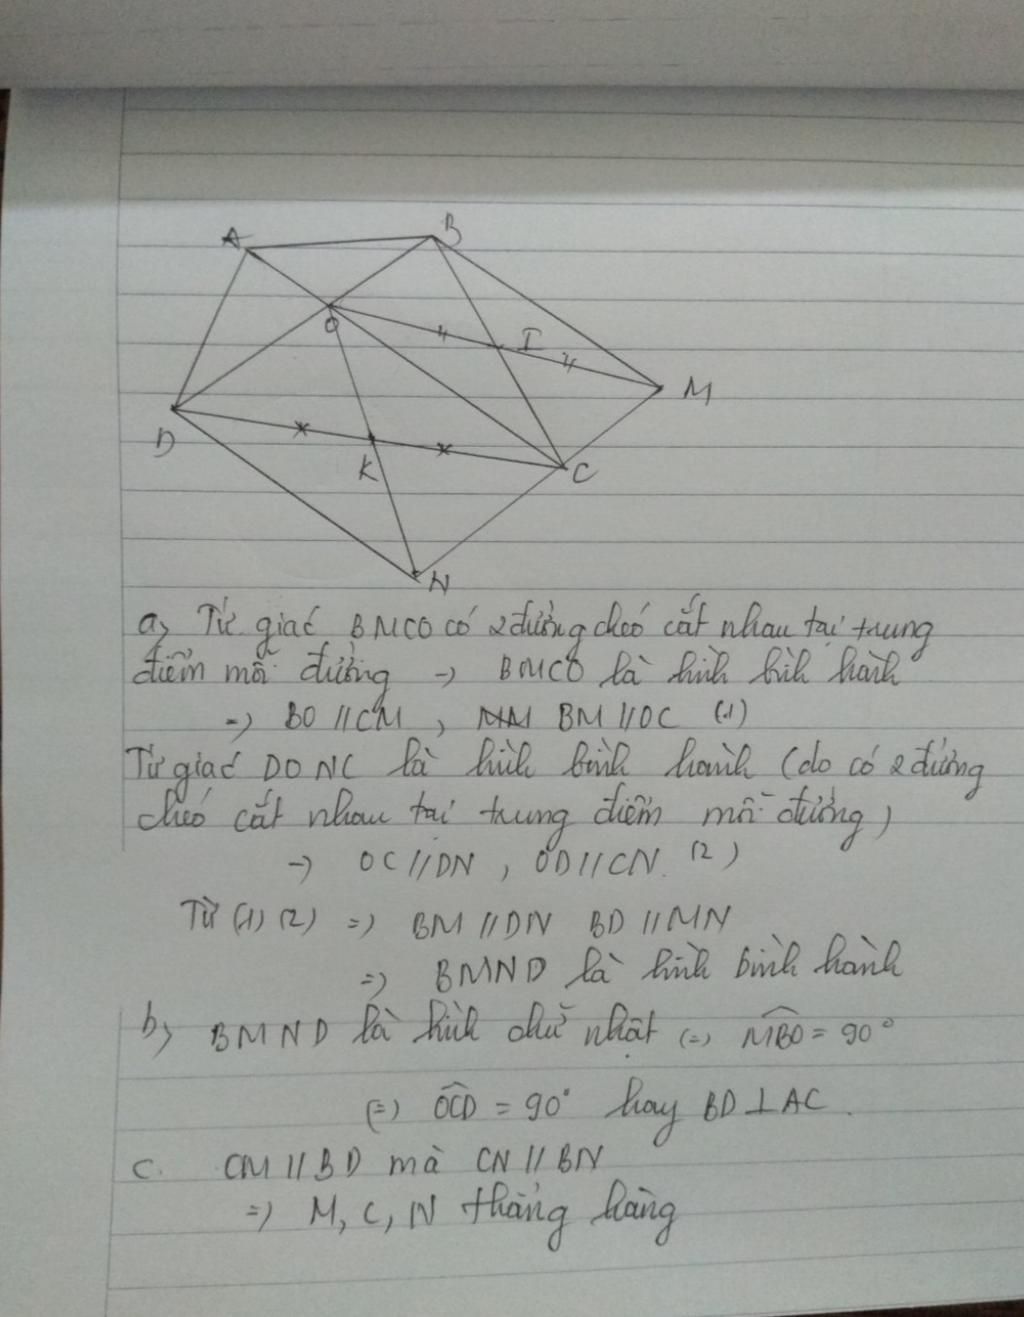 A B
O I
M
D
K C
N
a, Tứ giác BMCO có 2 đường chéo cắt nhau tại trung
điểm mỗi đường → BMCO là hình bình hành
→ BO // CM , BM // OC (1)
Tứ giác DONC là hình bình hành (do có 2 đường
chéo cắt nhau tại trung điểm mỗi đường)
→ OC // DN , OD // CN. (2)
Từ (1) (2) => BM // DN BD // MN
=> BMND là hình bình hành
b, BMND là hình chữ nhật (=) MBO = 90°
(=) OCD = 90° hay BD ⊥ AC.
c. CM // BD mà CN // BN
=> M, C, N thẳng hàng